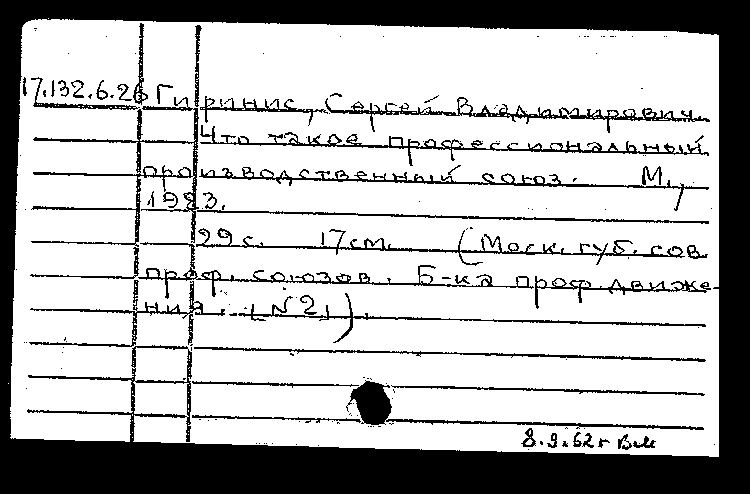 17.132.6.26 Гиринис, Сергей Владимирович.
Что такое профессиональный
производственный союз. М.,
1923.
29 с. 17 см. (Моск. губ. сов.
проф. союзов. Б-ка проф. движе-
ния. [№2]).
8.9.62 г